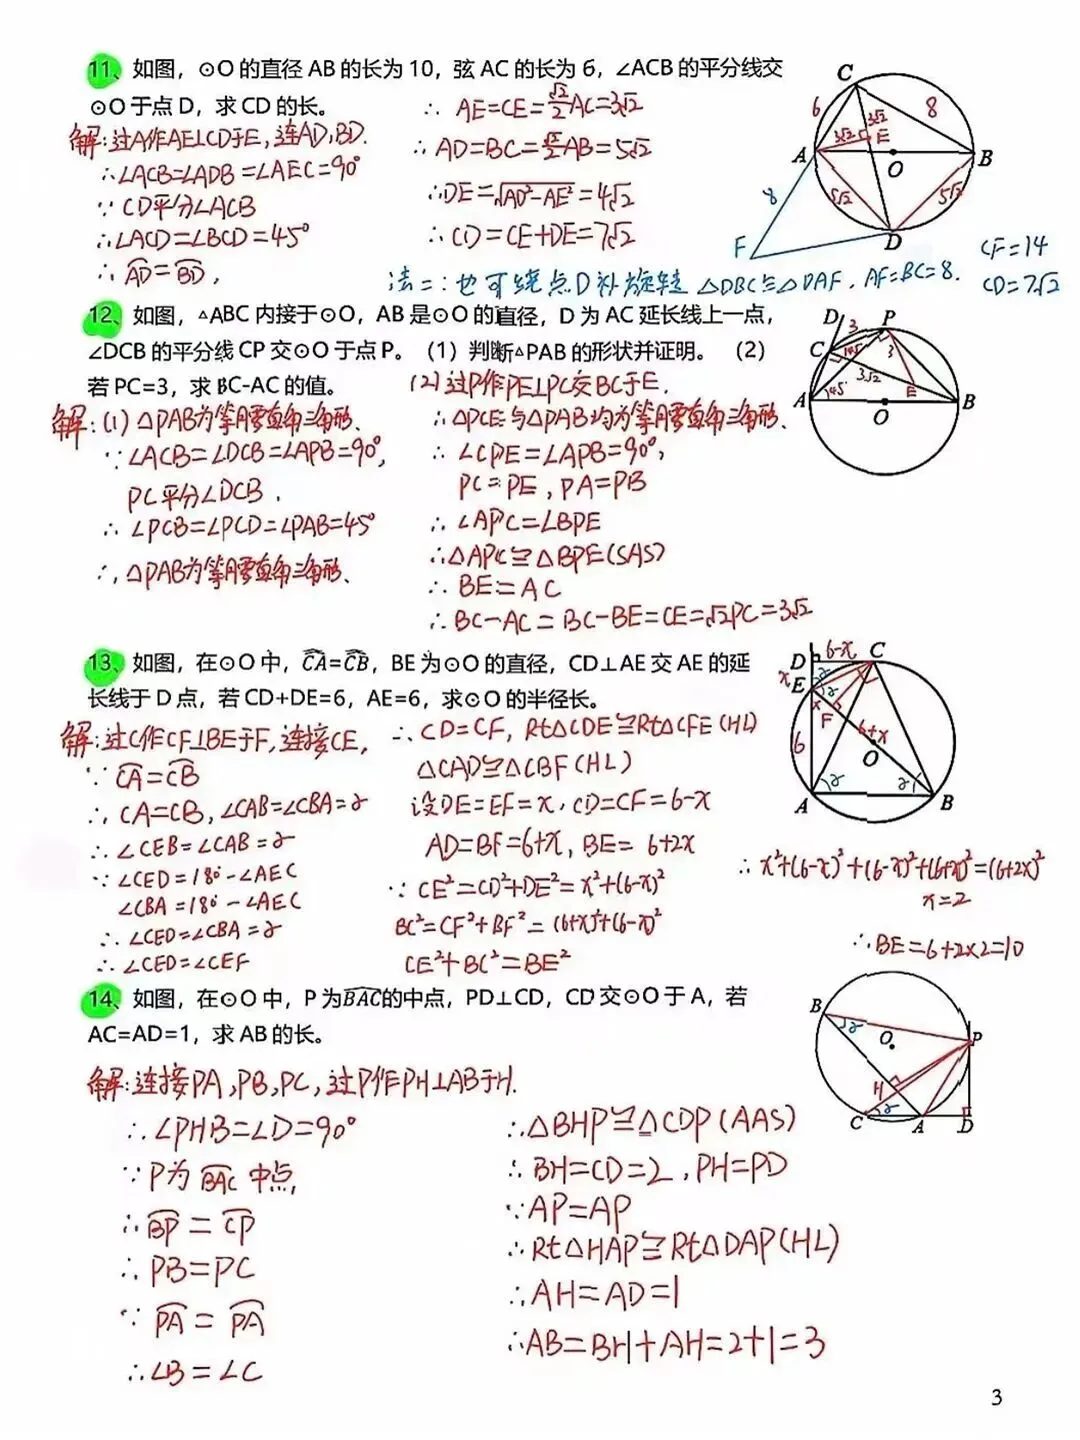 11、如图，⊙O 的直径 AB 的长为 10，弦 AC 的长为 6，∠ACB 的平分线交
⊙O 于点 D，求 CD 的长。
解:过A作AE⊥CD于E,连AD,BD.
∴∠ACB=∠ADB=∠AEC=90°
∵ CD平分∠ACB
∴∠ACD=∠BCD=45°
∴ AD=BD,
∴ AE=CE=√2/2AC=3√2
∴ AD=BC=√2/2AB=5√2
∴DE=√AD²-AE²=4√2
∴ CD=CE+DE=7√2
法二:也可绕点D补旋转 △DBC≌△DAF. AF=BC=8.
CF=14
CD=7√2
C
6
8
3√2
3√2
E
A
O
B
5√2
5√2
8
D
F
12、如图，△ABC 内接于⊙O，AB 是⊙O 的直径，D 为 AC 延长线上一点，
∠DCB 的平分线 CP 交⊙O 于点 P。（1）判断△PAB 的形状并证明。（2）
若 PC=3，求 BC-AC 的值。
解:(1) △PAB为等腰直角三角形、
∵∠ACB=∠DCB=∠APB=90°,
PC平分∠DCB,
∴ ∠PCB=∠PCD=∠PAB=45°
∴,△PAB为等腰直角三角形、
(2)过P作PE⊥PC交BC于E.
∴△PCE与△PAB均为等腰直角三角形.
∴ ∠CPE=∠APB=90°,
PC=PE,PA=PB
∴ ∠APC=∠BPE
∴△APC≌△BPE(SAS)
∴ BE=AC
∴ BC-AC=BC-BE=CE=√2PC=3√2
D
3
P
C
45°
3
3√2
E
A
45°
O
B
13、如图，在⊙O 中，CA=CB，BE 为⊙O 的直径，CD⊥AE 交 AE 的延
长线于 D 点，若 CD+DE=6，AE=6，求⊙O 的半径长。
解:过C作CF⊥BE于F,连接CE,
∵ CA=CB
∴, CA=CB,∠CAB=∠CBA=α
∴ ∠CEB=∠CAB=α
∵ ∠CED=180°-∠AEC
∠CBA=180°-∠AEC
∴ ∠CED=∠CBA=α
∴ ∠CED=∠CEF
∴ CD=CF, Rt△CDE≌Rt△CFE(HL)
△CAD≌△CBF(HL)
设DE=EF=x,CD=CF=6-x
AD=BF=6+x,BE= 6+2x
∵ CE²=CD²+DE²=x²+(6-x)²
BC²=CF²+BF²=(6+x)²+(6-x)²
CE²+BC²=BE²
∴ x²+(6-x)²+(6-x)²+(6+x)²=(6+2x)²
x=2
∴BE=6+2×2=10
D
6-x
C
x
E
α
α
x
F
6
6+x
O
A
α
α
B
14、如图，在⊙O 中，P 为BAC的中点，PD⊥CD，CD 交⊙O 于 A，若
AC=AD=1，求 AB 的长。
解:连接PA,PB,PC,过P作PH⊥AB于H.
∴∠PHB=∠D=90°
∵P为BAC中点,
∴BP=CP
∴PB=PC
∵ PA=PA
∴∠B=∠C
∴△BHP≌△CDP(AAS)
∴ BH=CD=2,PH=PD
∵AP=AP
∴Rt△HAP≌Rt△DAP(HL)
∴AH=AD=1
∴AB=BH+AH=2+1=3
B
α
O
P
H
C
α
A
D
3